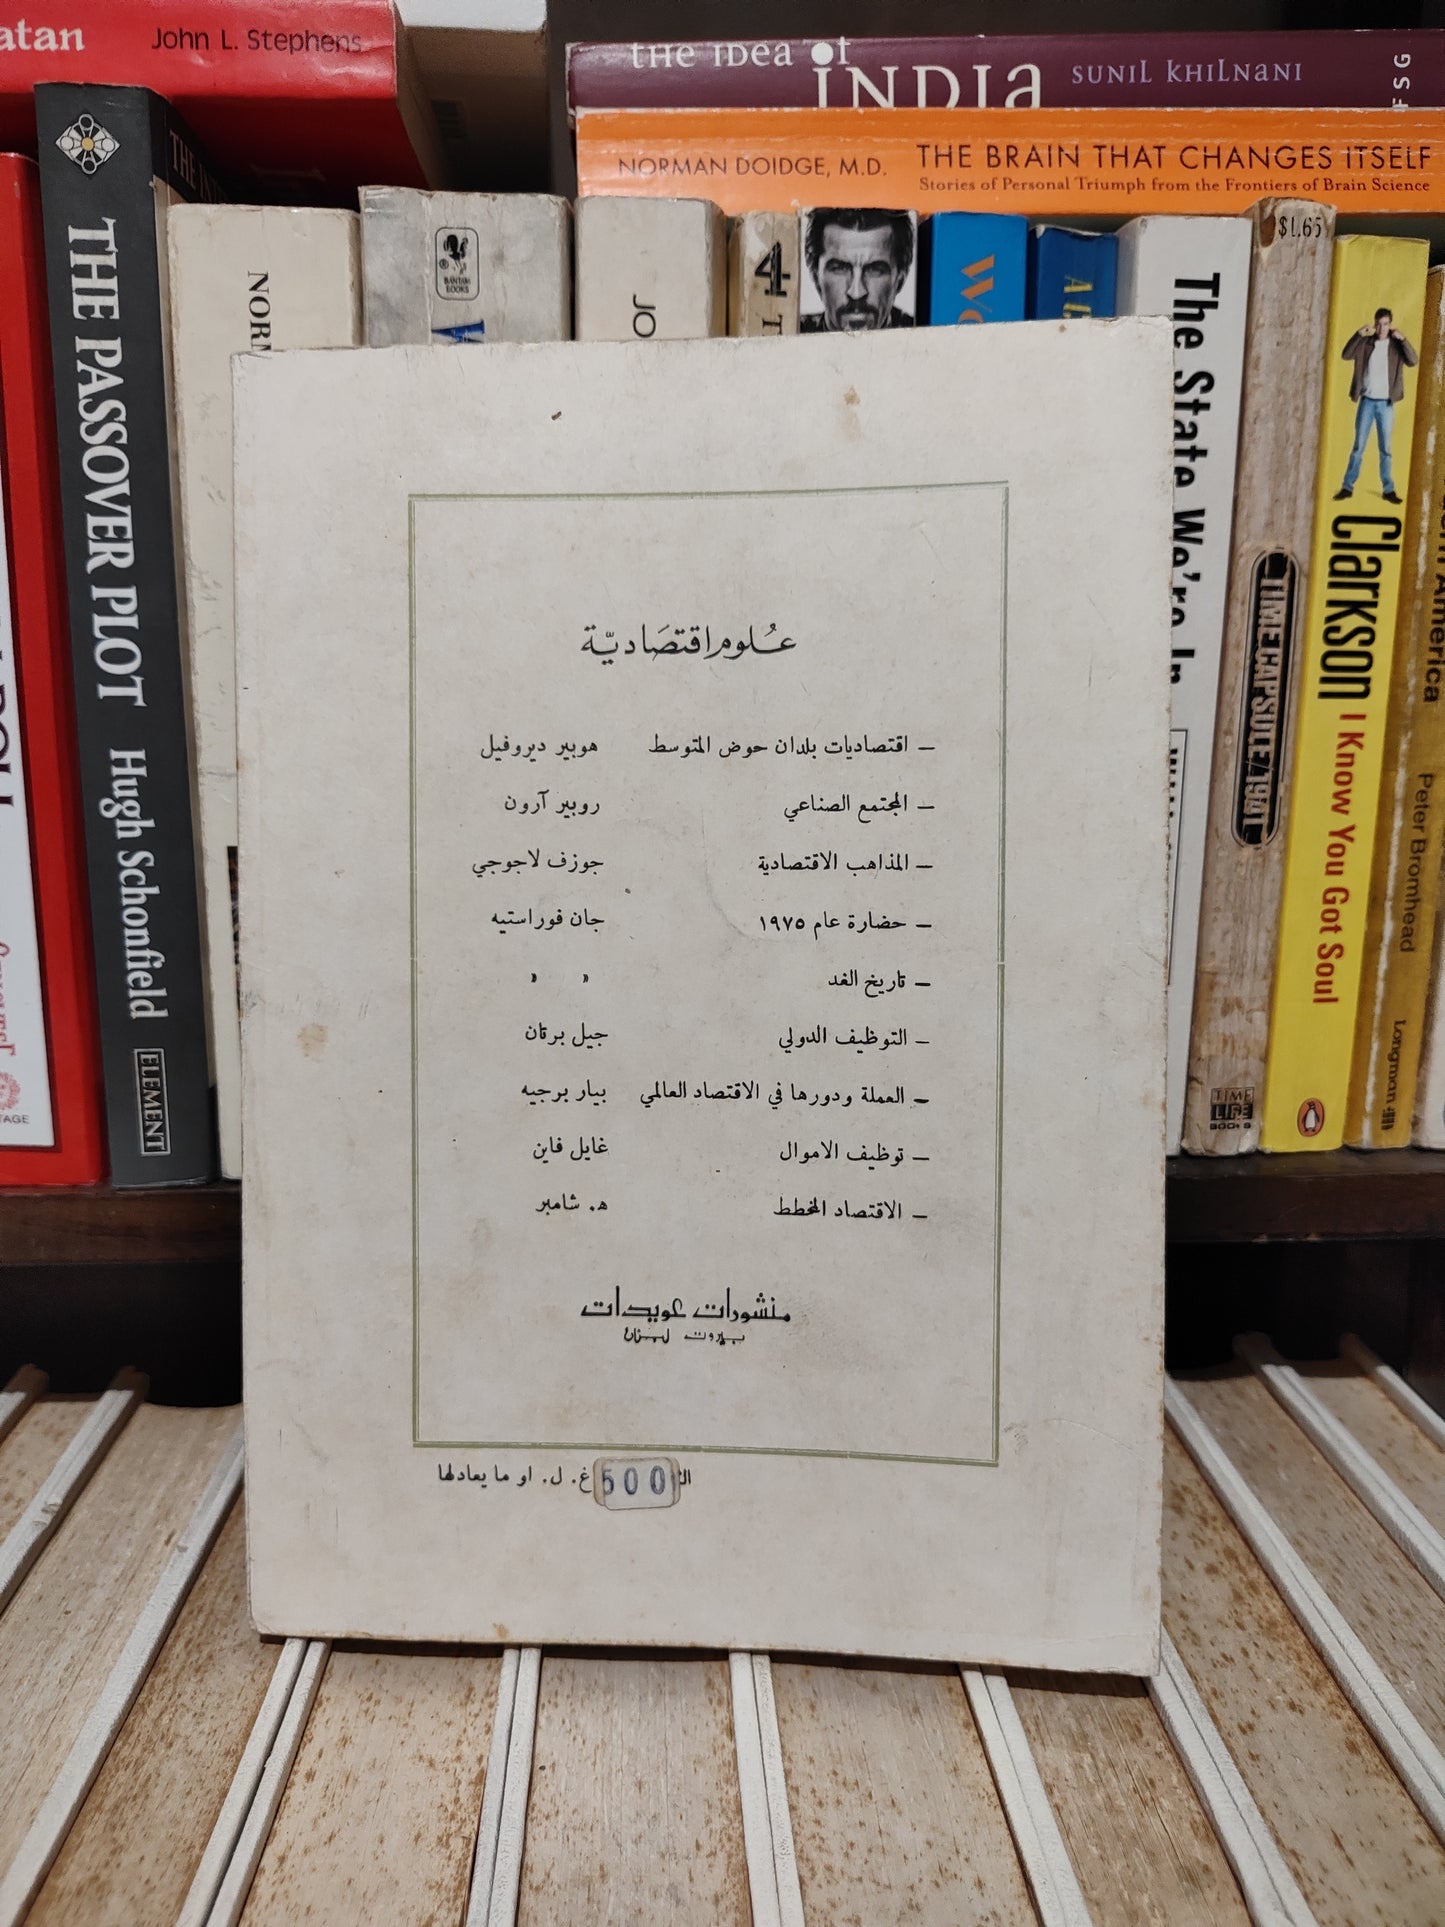 atan John L. Stephens
the idea of INDIA SUNIL KHILNANI FSG
NORMAN DOIDGE, M.D. THE BRAIN THAT CHANGES ITSELF
Stories of Personal Triumph from the Frontiers of Brain Science
THE PASSOVER PLOT Hugh Schonfield ELEMENT
BANTAM BOOKS
4
The State We're In
$1.65
TIME CAPSULE/1941
TIME LIFE BOOKS
Clarkson I Know You Got Soul
America Peter Bromhead Longman
علوم اقتصاديّة
– اقتصاديات بلدان حوض المتوسط هوبير ديروفيل
– المجتمع الصناعي روبير آرون
– المذاهب الاقتصادية جوزف لاجوجي
– حضارة عام ١٩٧٥ جان فوراستيه
– تاريخ الغد » »
– التوظيف الدولي جيل برتان
– العملة ودورها في الاقتصاد العالمي بيار برجيه
– توظيف الاموال غايل فاين
– الاقتصاد المخطط ه. شامبر
منشورات عويدات
بيروت لبنان
500 غ. ل. او ما يعادلها